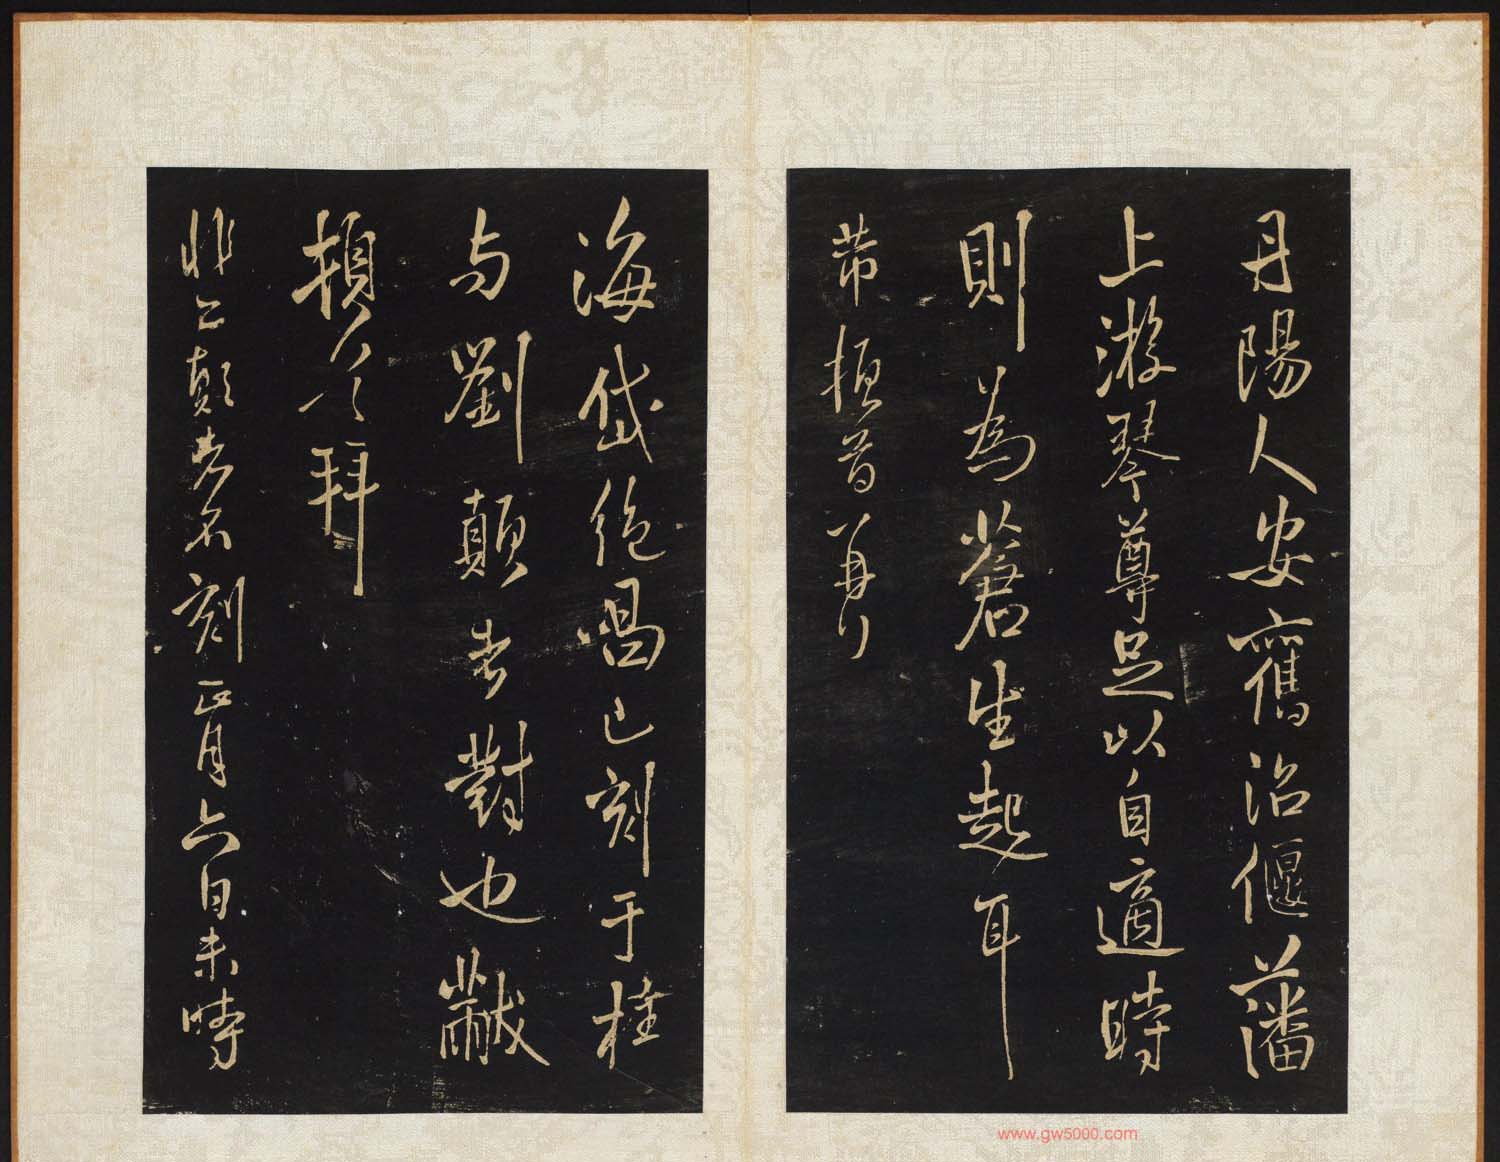 丹陽人安舊治偃藩
上游琴尊足以自適時
則為蒼生起耳
芾頓首再拜
海岱絶唱已刻于桂
与劉顛書對也黻
頓首拜
非公顛不刻正月六日未時
www.gw5000.com